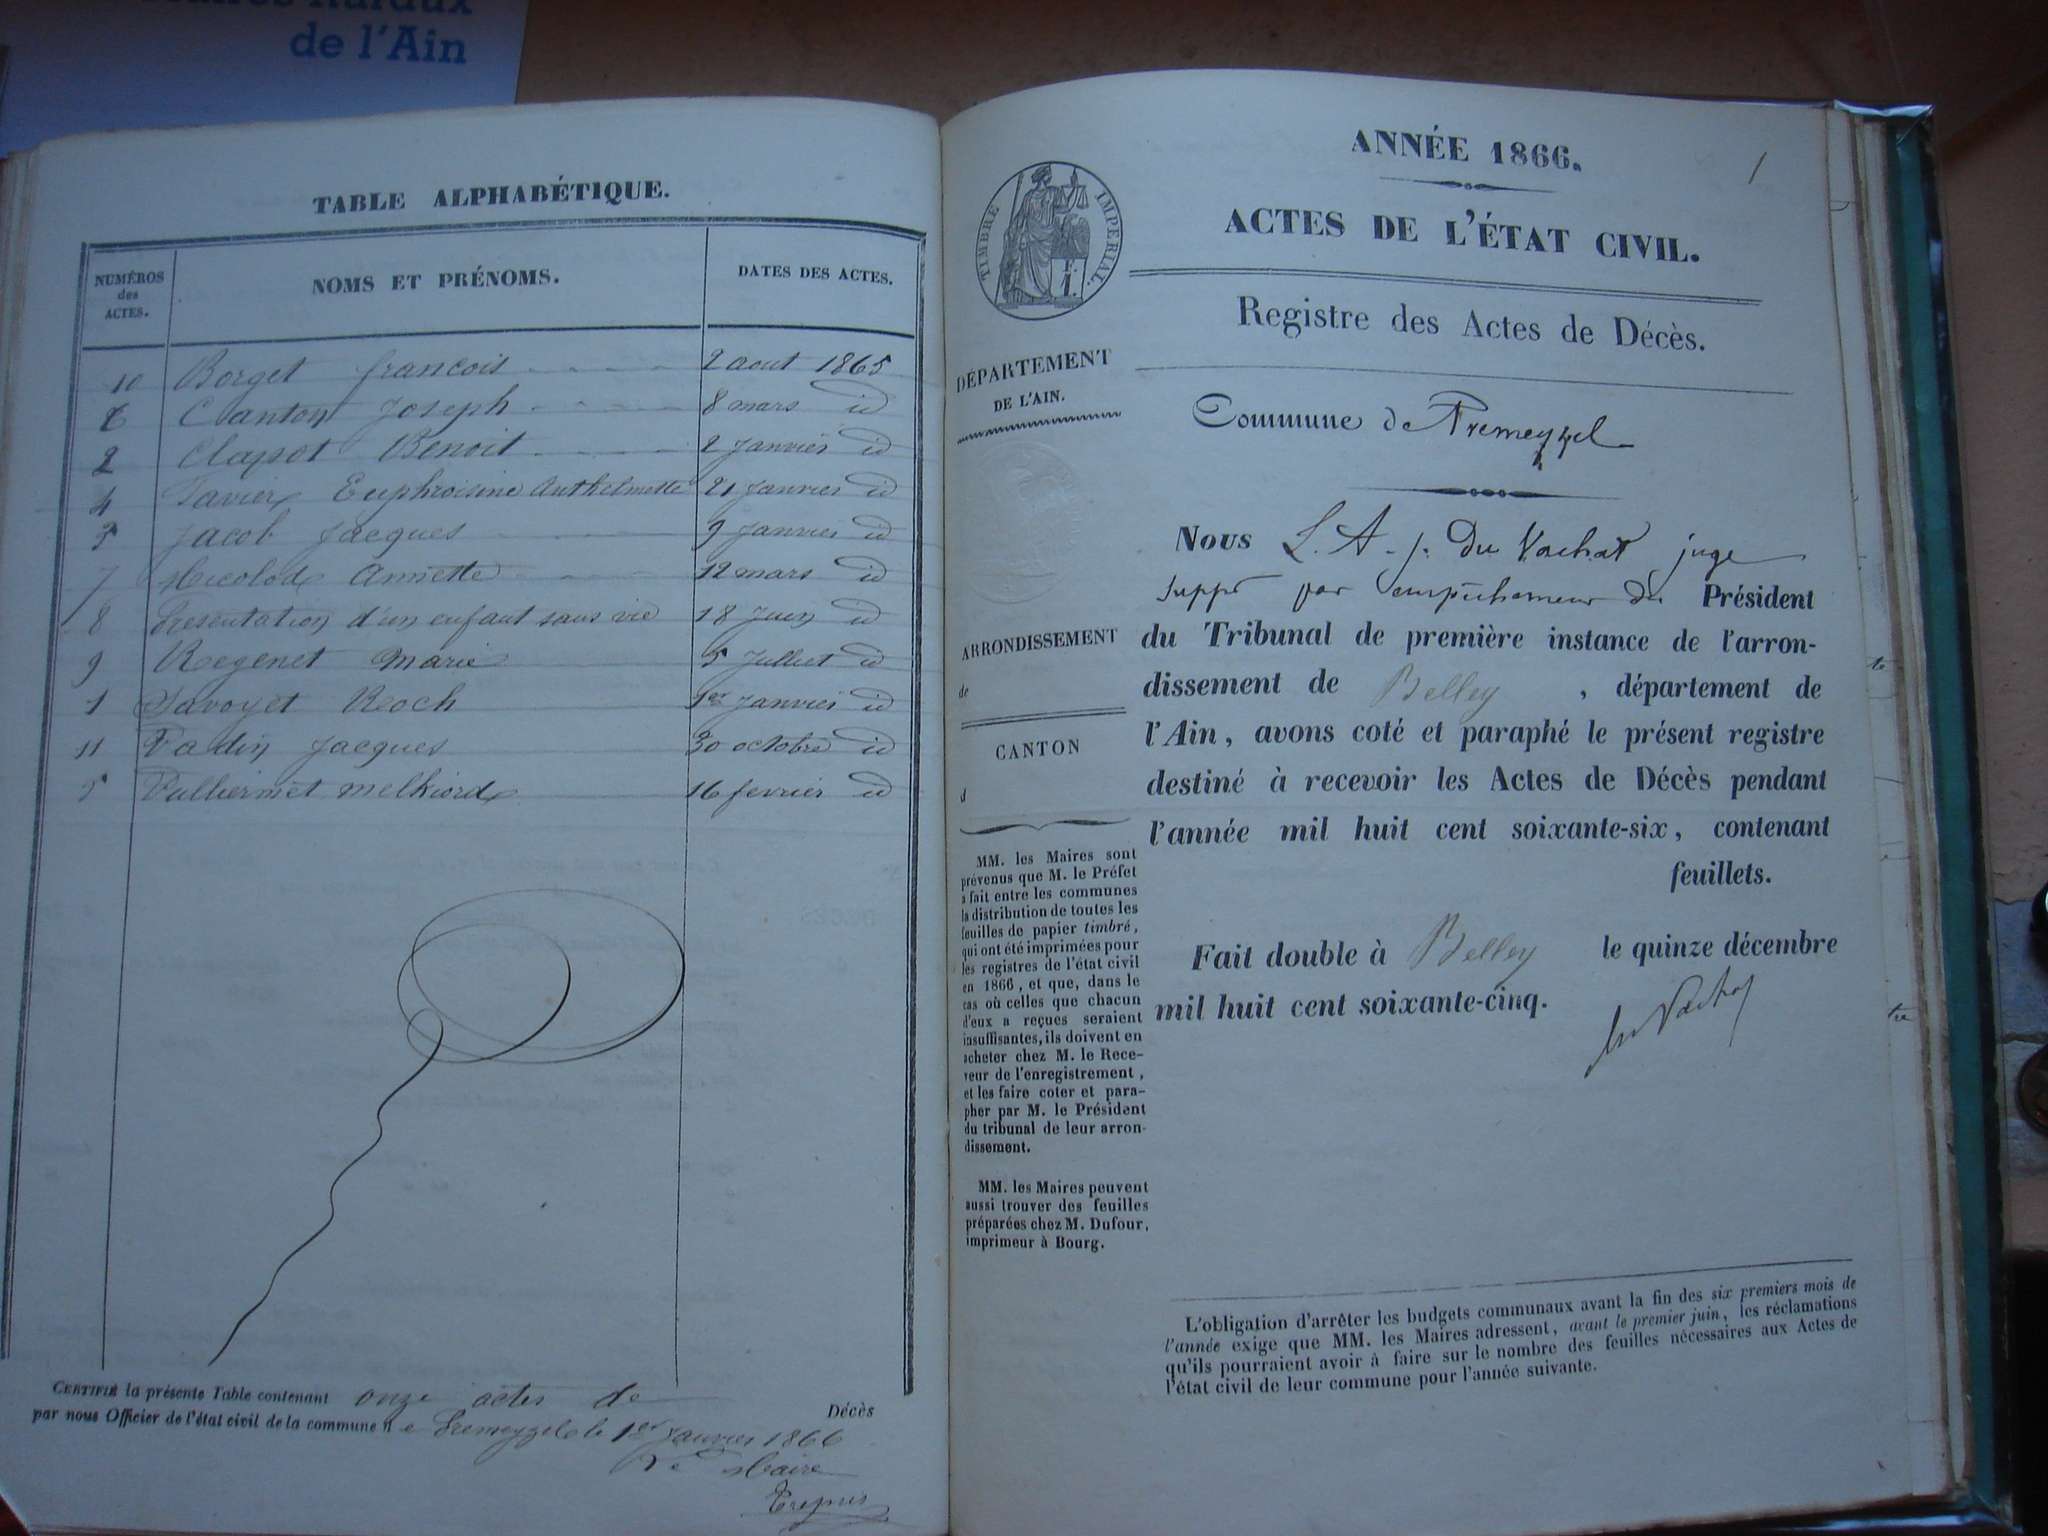 de l'Ain
TABLE ALPHABÉTIQUE.
NUMÉROS des ACTES. NOMS ET PRÉNOMS. DATES DES ACTES.
10 Borget francois 2 aout 1865
6 Canton Joseph 8 mars id
2 Clapot Benoit 2 Janvier id
4 Tavier Euphroisine Anthelmette 21 Janvier id
3 Jacob Jacques 9 Janvier id
7 Micolod Annette 12 mars id
8 Présentation d'un enfant sans vie 18 Juin id
9 Regenet Marie 5 Julliet id
1 Savoyet Roch 1er Janvier id
11 Vadin Jacques 30 octobre id
5 Vulliermet melkiord 16 fevrier id
CERTIFIÉ la présente Table contenant onze actes de Décès
par nous Officier de l'état civil de la commune de Premeyzel le 1er Janvier 1866
Le Maire
ANNÉE 1866.
1
ACTES DE L'ÉTAT CIVIL.
TIMBRE IMPERIAL.
F.
1.
Registre des Actes de Décès.
DÉPARTEMENT
DE L'AIN.
Commune de Premeyzel
Nous L. A. J. Du Vachat juge
supp. par empêchement du Président
du Tribunal de première instance de l'arron-
dissement de Belley, département de
l'Ain, avons coté et paraphé le présent registre
destiné à recevoir les Actes de Décès pendant
l'année mil huit cent soixante-six, contenant
feuillets.
Fait double à Belley le quinze décembre
mil huit cent soixante-cinq.
du Vachat
ARRONDISSEMENT
de
CANTON
d
MM. les Maires sont
prévenus que M. le Préfet
a fait entre les communes
la distribution de toutes les
feuilles de papier timbré,
qui ont été imprimées pour
les registres de l'état civil
en 1866, et que, dans le
cas où celles que chacun
d'eux a reçues seraient
insuffisantes, ils doivent en
acheter chez M. le Rece-
veur de l'enregistrement,
et les faire coter et para-
pher par M. le Président
du tribunal de leur arron-
dissement.
MM. les Maires peuvent
aussi trouver des feuilles
préparées chez M. Dufour,
imprimeur à Bourg.
L'obligation d'arrêter les budgets communaux avant la fin des six premiers mois de
l'année exige que MM. les Maires adressent, avant le premier juin, les réclamations
qu'ils pourraient avoir à faire sur le nombre des feuilles nécessaires aux Actes de
l'état civil de leur commune pour l'année suivante.